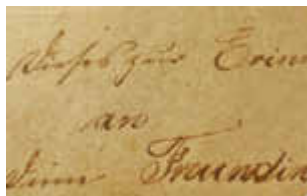 Dieses zur Erin
an
Deine Freundin